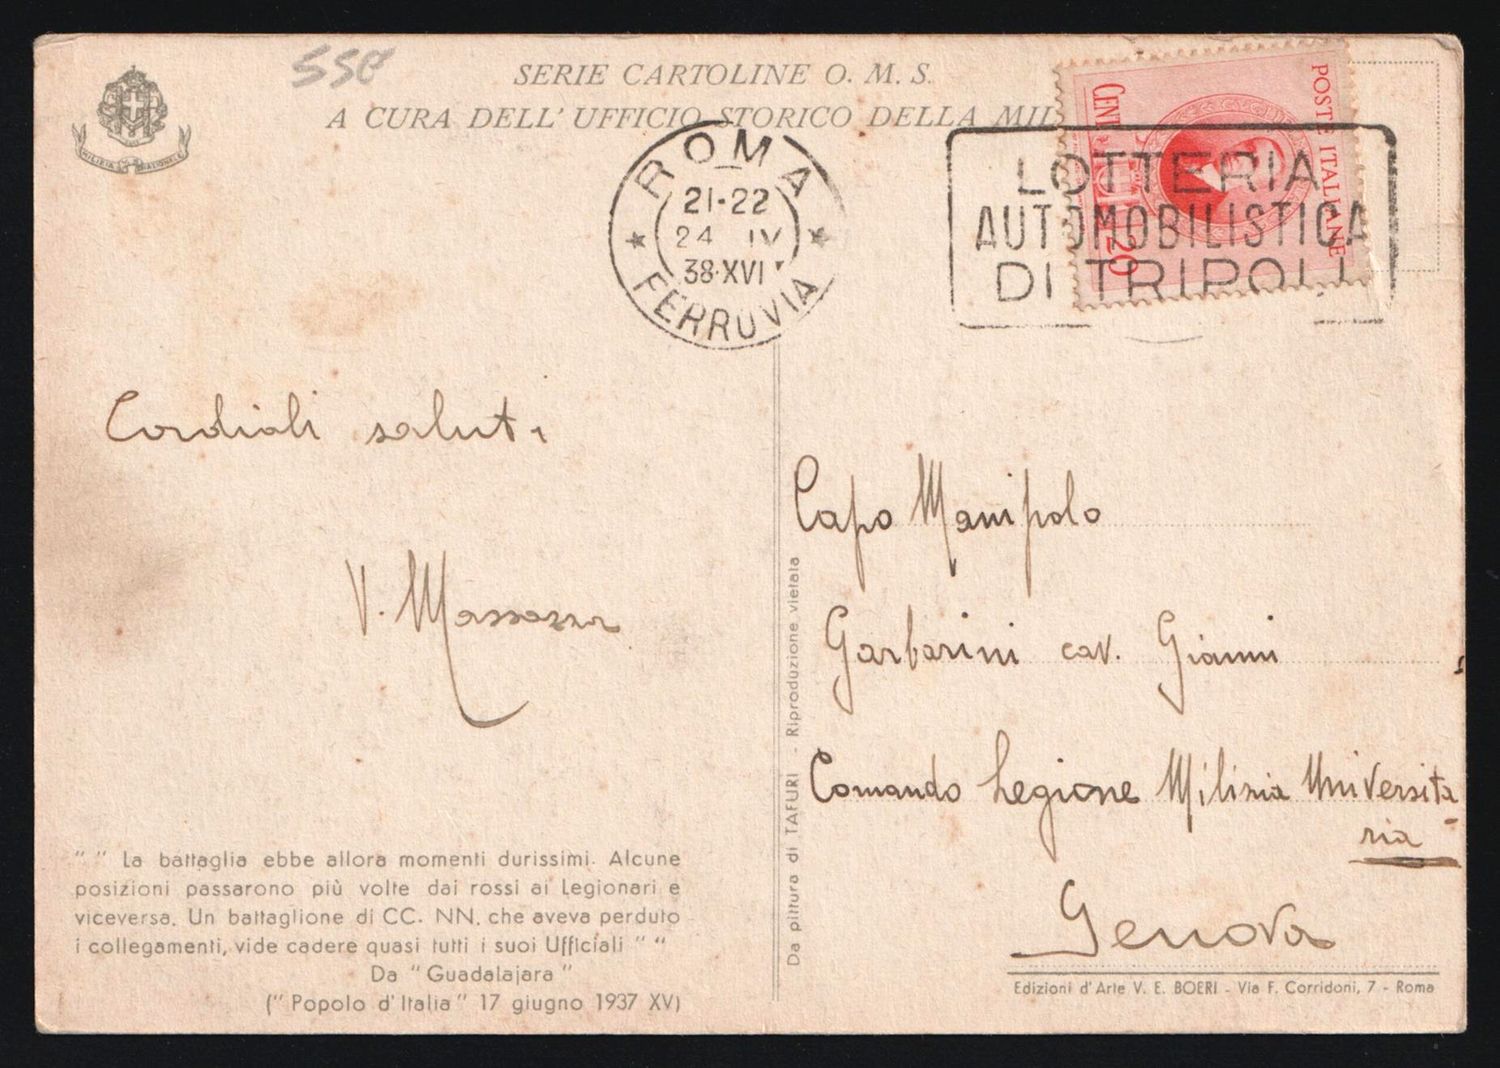 SSC
SERIE CARTOLINE O. M. S.
A CURA DELL' UFFICIO STORICO DELLA MIL
MILIZIA NAZIONALE
ROMA
21-22
24 IV
38·XVI
FERRUVIA
POSTE ITALIANE
CENT. 20
LOTTERIA
AUTOMOBILISTICA
DI TRIPOLI
Cordiali saluti
V. Massazza
Capo Manipolo
Garbarini cav. Gianni
Comando Legione Milizia Universita
ria
Genova
" " La battaglia ebbe allora momenti durissimi. Alcune
posizioni passarono più volte dai rossi ai Legionari e
viceversa. Un battaglione di CC. NN. che aveva perduto
i collegamenti, vide cadere quasi tutti i suoi Ufficiali " "
Da " Guadalajara "
(" Popolo d'Italia " 17 giugno 1937 XV)
Da pittura di TAFURI - Riproduzione vietata
Edizioni d'Arte V. E. BOERI - Via F. Corridoni, 7 - Roma